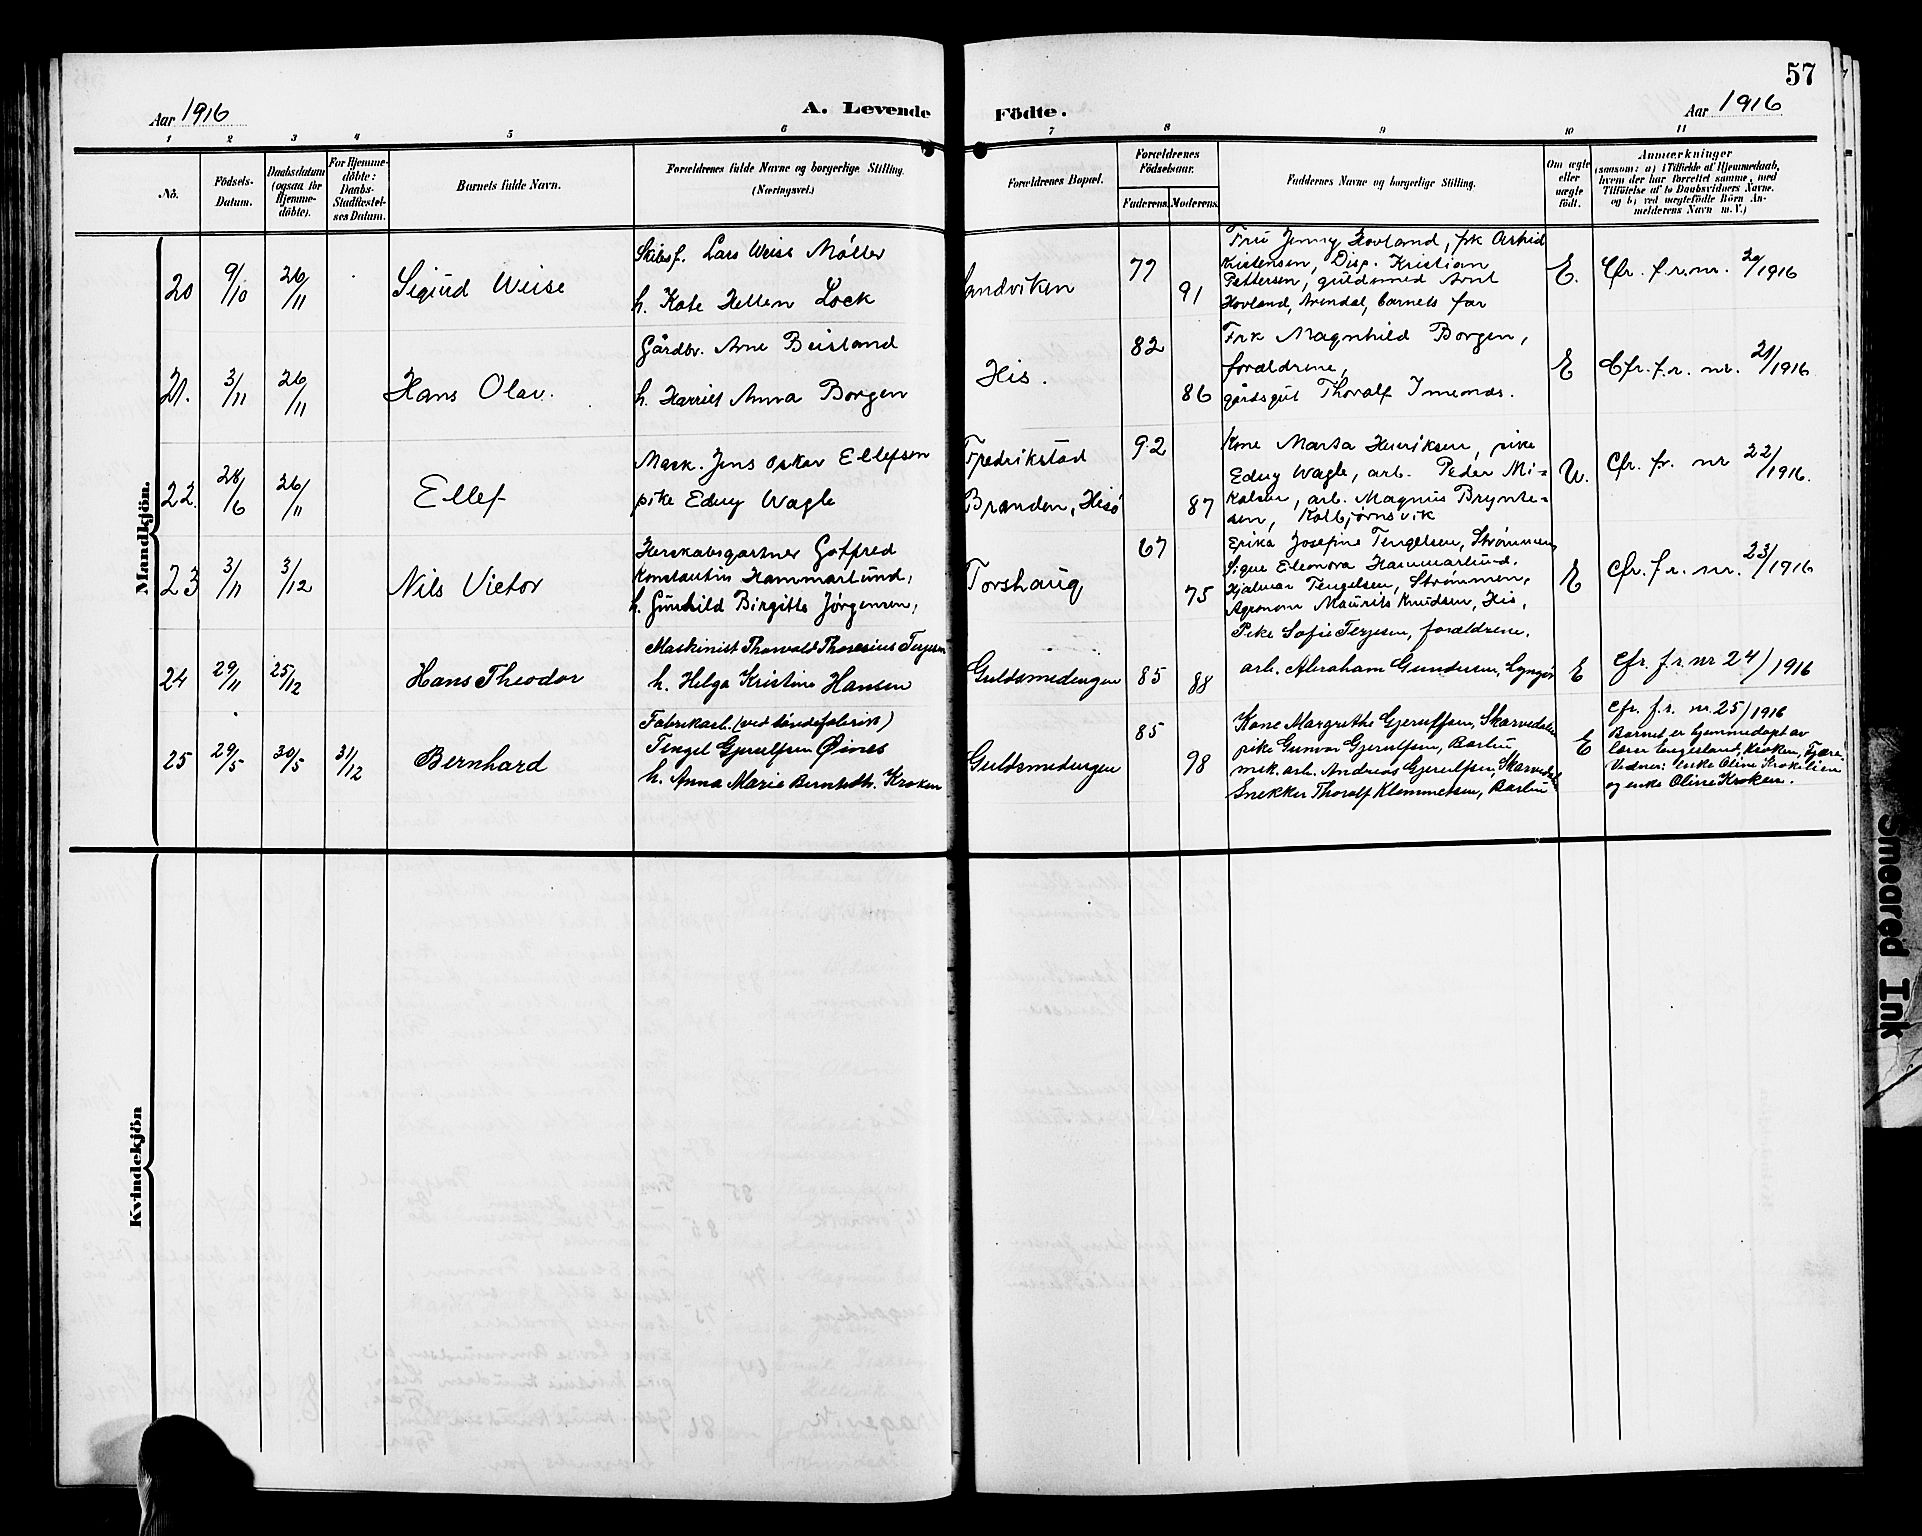 57
Aar 1916
A. Levende
Födte.
Aar 1916
1 2 3 4 5 6 7 8 9 10 11
No.
Födsels-
Datum.
Daabsdatum
(ogsaa for
Hjemme-
döbte).
For Hjemme-
döbte:
Daabs-
Stadfæstel-
ses Datum.
Barnets fulde Navn.
Forældrenes fulde Navne og borgerlige Stilling.
(Næringsvei.)
Forældrenes Bopæl.
Forældrenes
Födselsaar.
Faderens. Moderens.
Faddernes Navne og borgerlige Stilling.
Om ægte
eller
uægte
födt.
Anmærkninger
(saasom: a) i Tilfælde af Hjemmedaab,
hvem der har forrettet samme, med
Tilföielse af to Daabsvidners Navne.
og b) ved uægtefödte Börn An-
melderens Navn m. V.)
Mandkjön.
20 9/10 26/11
Sigurd Weise
Skibsf. Lars Weise Møller
h. Kate Hellen Lock
Sandviken
77
91
Fru Jenny Hovland, frk Astrid
Kristensen, Disp. Kristian
Pettersen, guldsmed Arnt
Hovland, Arendal, barnets far
E.
Cfr. f.r. nr. 20/1916
21. 3/11 26/11
Hans Olav.
Gårdbr. Arne Beisland
h. Harriet Anna Borgen
His.
82
86
Frk Magnhild Borgen,
forældrene,
gårdsgut Thoralf Imenæs.
E
Cfr. f. r. nr. 21/1916
22. 28/6 26/11
Ellef
Mask. Jens Oskar Ellefsen
pike Edny Wagle
Fredrikstad
Branden, Hisø
92
87
Kone Marta Henriksen, pike
Edny Wagle, arb. Peder Mi-
kalsen, arb. Magnus Brynte-
sen, Kolbjørnsvik
U.
Cfr. fr. nr 22/1916.
23 3/11 3/12
Nils Victor
Herskabsgartner Gotfred
Konstantin Hammarlund,
h. Gunhild Birgitte Jørgensen,
Torshaug
67
75
Erika Josefine Tengelsen, Strømmen,
Signe Eleonora Hammarlund,
Hjalmar Tengelsen, Strømmen,
Agronom Maurits Knudsen, His,
Pike Sofie Terjesen, forældrene.
E
Cfr. f. r. nr. 23/1916
24 29/11 25/12
Hans Theodor
Maskinist Thorvald Thoresius Terjesen
h. Helga Kristine Hansen
Guldsmedengen
85
88
arb. Abraham Gundersen, Lyngør
E
Cfr. f.r. nr 24/1916
25 29/5 30/5 31/12
Bernhard
Fabrikarb. (ved tøndefabrik)
Tengel Gjerulfsen Øines
h. Anna Marie Berntsdtr. Kroken
Guldsmedengen
85
98
Kone Margrethe Gjerulfsen, Skarvedalen
pike Gunvor Gjerulfsen, Barbu
mek. arb. Andreas Gjerulfsen, Skarvedalen
Snekker Thoralf Klemmetsen, Barbu
E
Cfr. f.r. nr. 25/1916
Barnet er hjemmedøpt av
lærer Engesland, Kroken, Fjære.
Vidner: enke Oline Kroklien
og enke Oline Kroken.
Kvindekjön
Smeared Ink